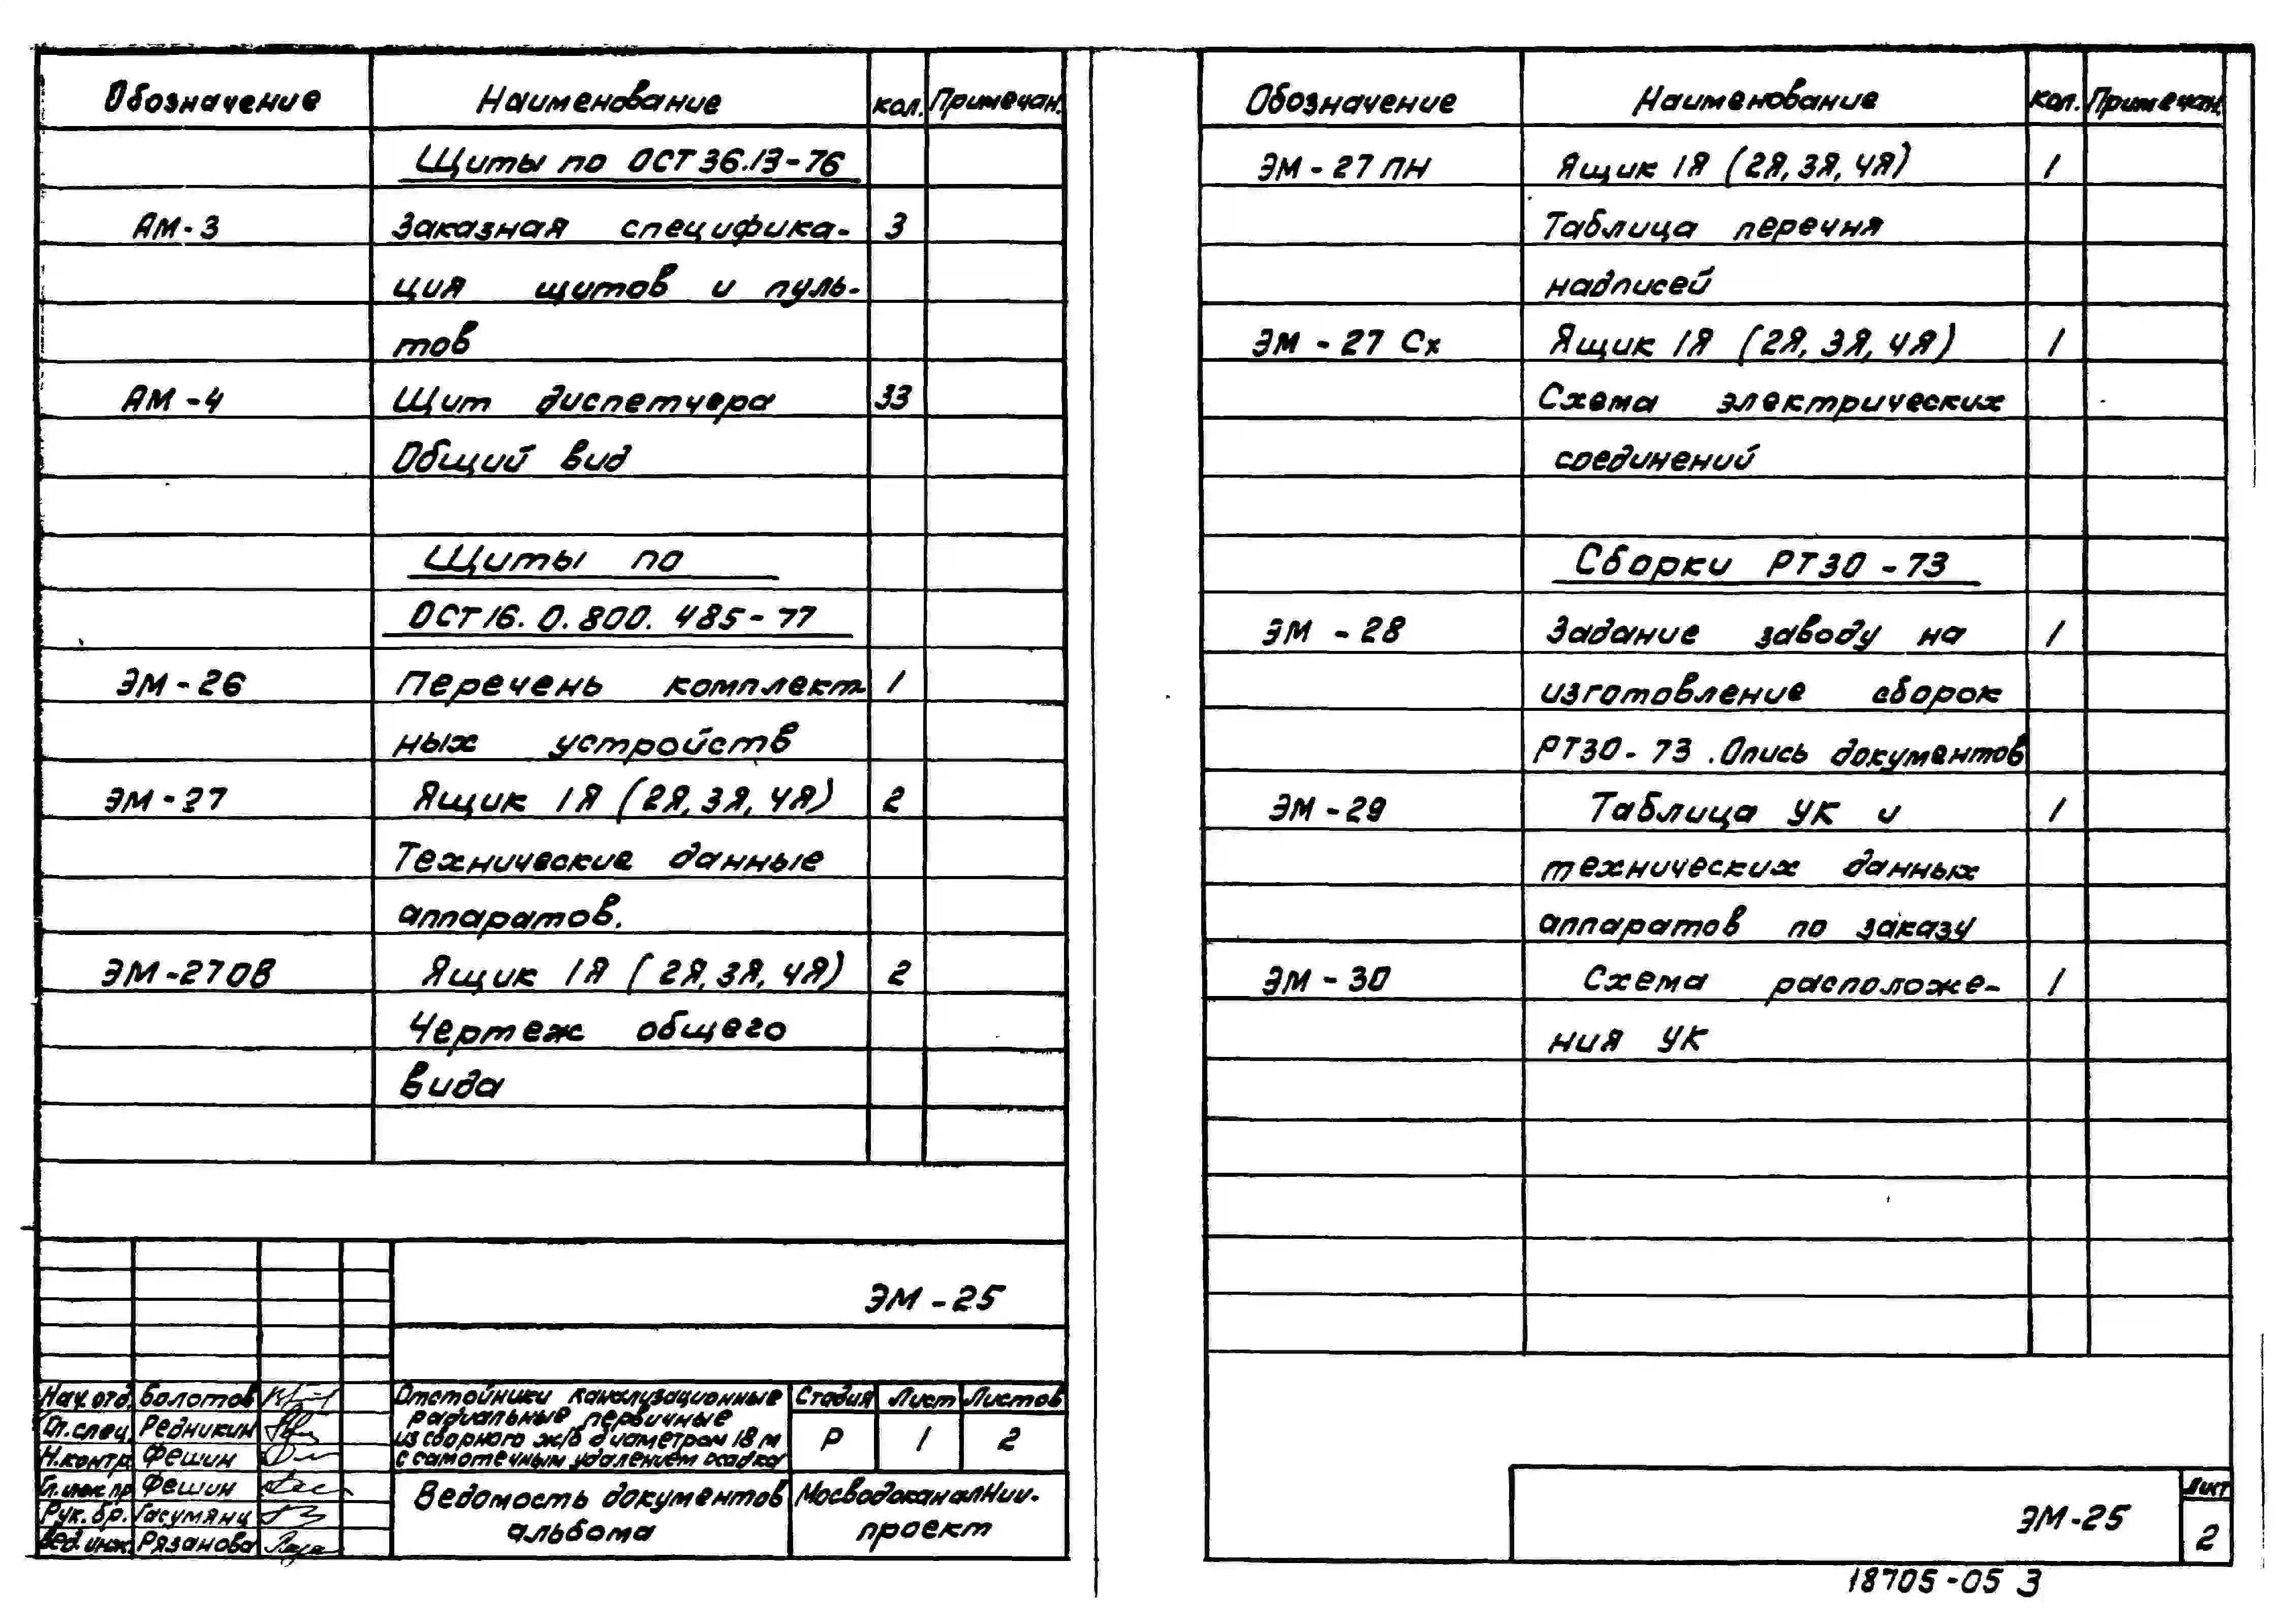 Обозначение Наименование кол. Примечан.
Щиты по ОСТ 36.13-76
АМ-3 Заказная специфика- 3
ция щитов и пуль-
тов
АМ-4 Щит диспетчера 33
Общий вид
Щиты по
ОСТ16. 0.800. 485-77
ЭМ-26 Перечень комплект- 1
ных устройств
ЭМ-27 Ящик 1Я (2Я, 3Я, 4Я) 2
Технические данные
аппаратов.
ЭМ-27ОВ Ящик 1Я (2Я, 3Я, 4Я) 2
Чертеж общего
вида
ЭМ-25
Нач. отд. Болотов
Гл. спец. Редникин
Н. контр. Фешин
Гл. инж. пр. Фешин
Рук. бр. Гасумянц
Вед. инж. Рязанова
Отстойники канализационные
радиальные первичные
из сборного ж/б диаметром 18 м
с самотечным удалением осадка
Стадия Лист Листов
Р 1 2
Ведомость документов
альбома
МосводоканалНИИ-
проект
Обозначение Наименование кол. Примечан.
ЭМ-27 ПН Ящик 1Я (2Я, 3Я, 4Я) 1
Таблица перечня
надписей
ЭМ-27 Сх Ящик 1Я (2Я, 3Я, 4Я) 1
Схема электрических
соединений
Сборки РТ30-73
ЭМ-28 Задание заводу на 1
изготовление сборок
РТ30-73. Опись документов
ЭМ-29 Таблица УК и 1
технических данных
аппаратов по заказу
ЭМ-30 Схема расположе- 1
ния УК
ЭМ-25
Лист
2
18705-05 3